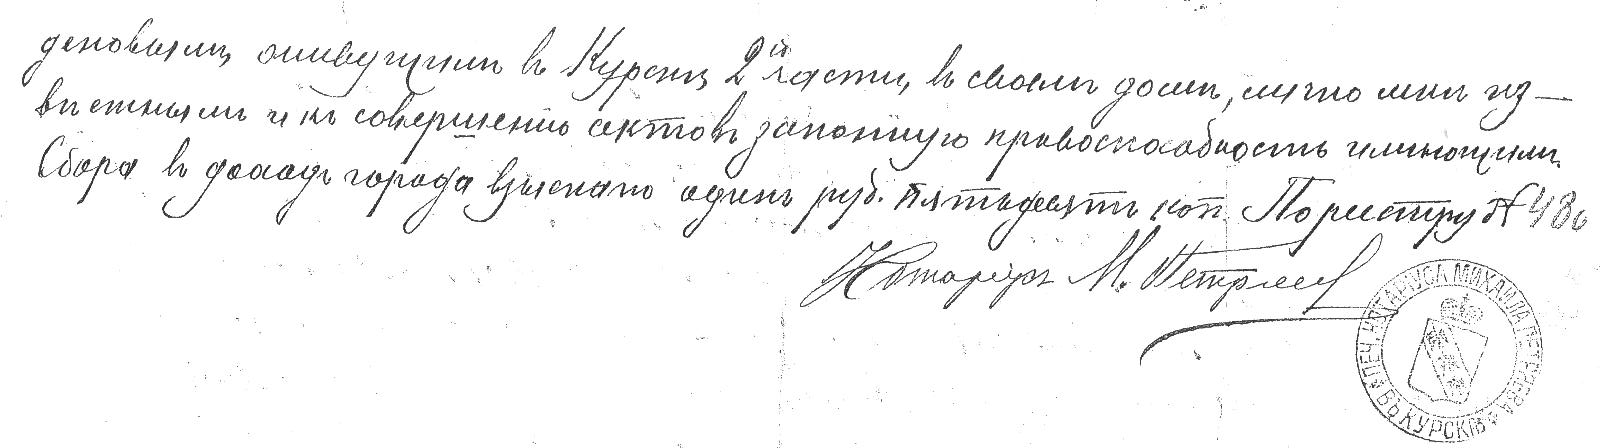 деновымъ, живущимъ въ Курскѣ, 2й части, въ своемъ домѣ, лично мнѣ из-
вѣстнымъ и къ совершенію актовъ законную правоспособность имѣющимъ.
Сбора въ доходъ города взыскано одинъ руб. пятьдесятъ коп. По реестру № 480
Нотаріусъ М. Петр
ПЕЧ. НОТАРІУСА МИХАИЛА ПЕТР ВЪ КУРСКѢ